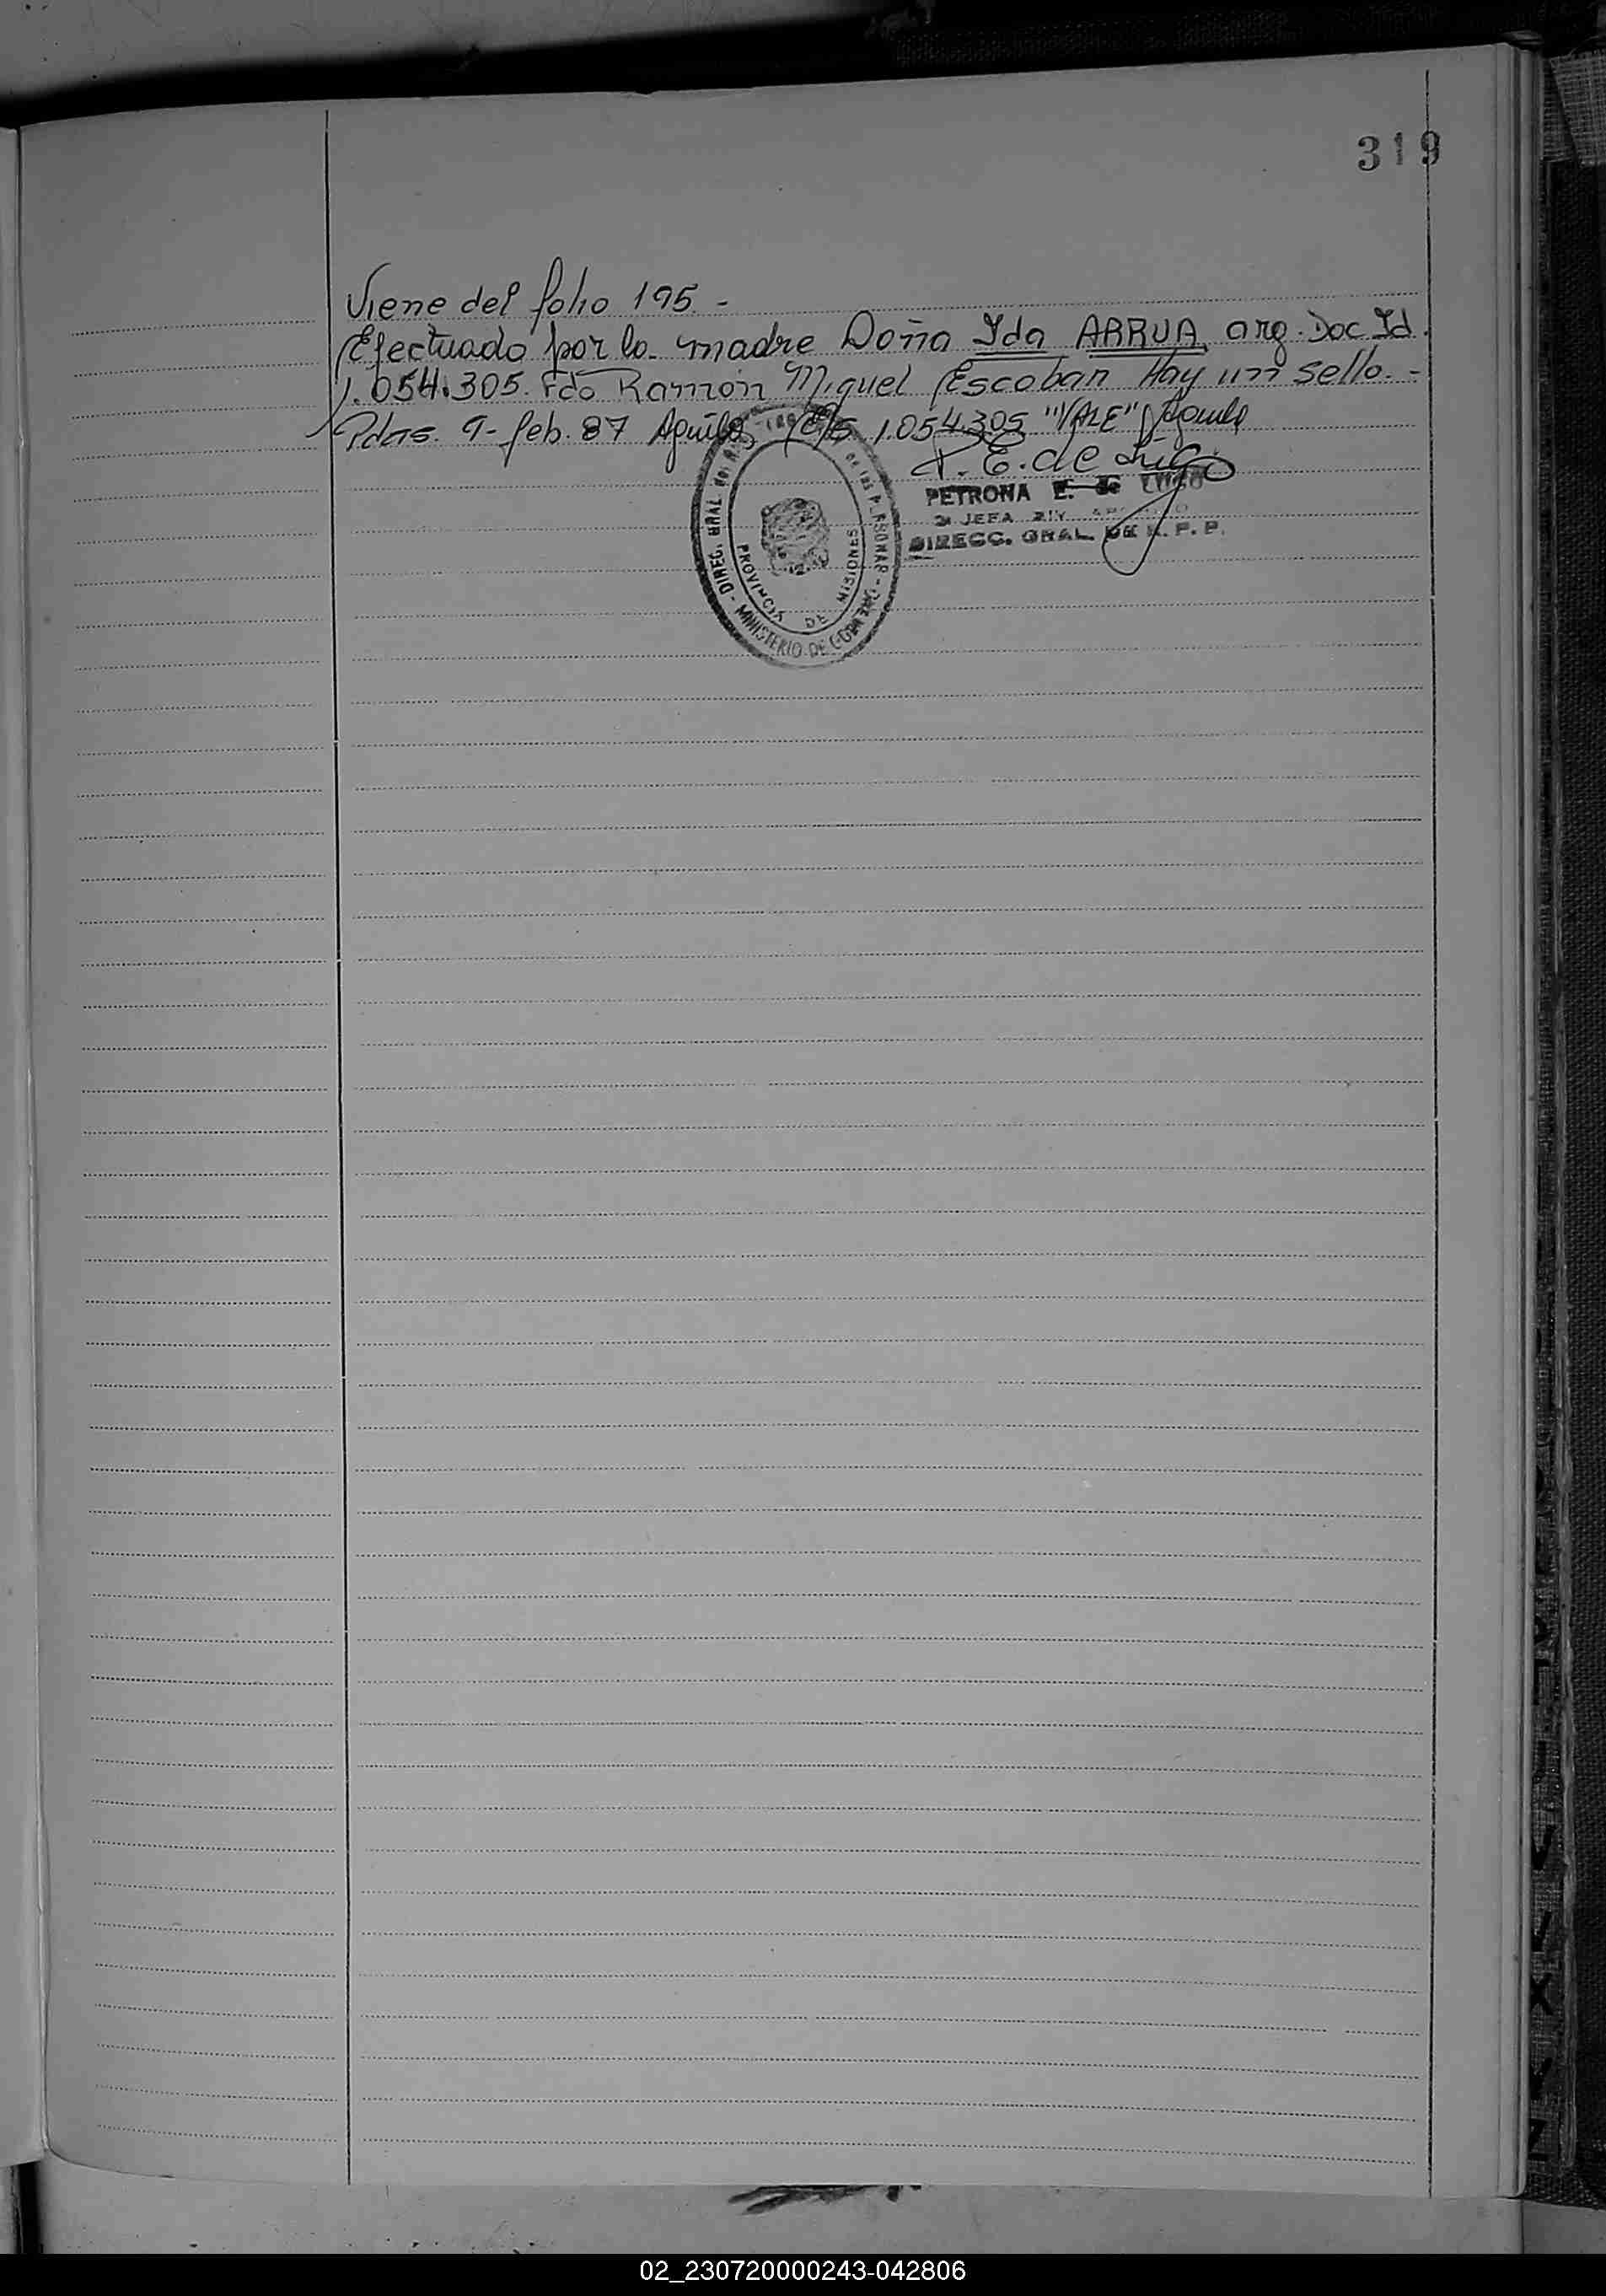 319
Viene del folio 195.-
Efectuado por la madre Doña Yda ARRUA, arg. Doc Id.
1.054.305. Fdo Ramón Miguel Escobar Hay un sello.-
Pdas. 9- feb. 87 Aguila 1.054.305 "VALE"
P. E. de Lugo
PETRONA E. de LUGO
JEFA DIV.
DIRECC. GRAL. DE R. P. P.
DIREC. GRAL de las PERSONAS - MINISTERIO DE GOBIERNO
PROVINCIA DE MISIONES
02_230720000243-042806